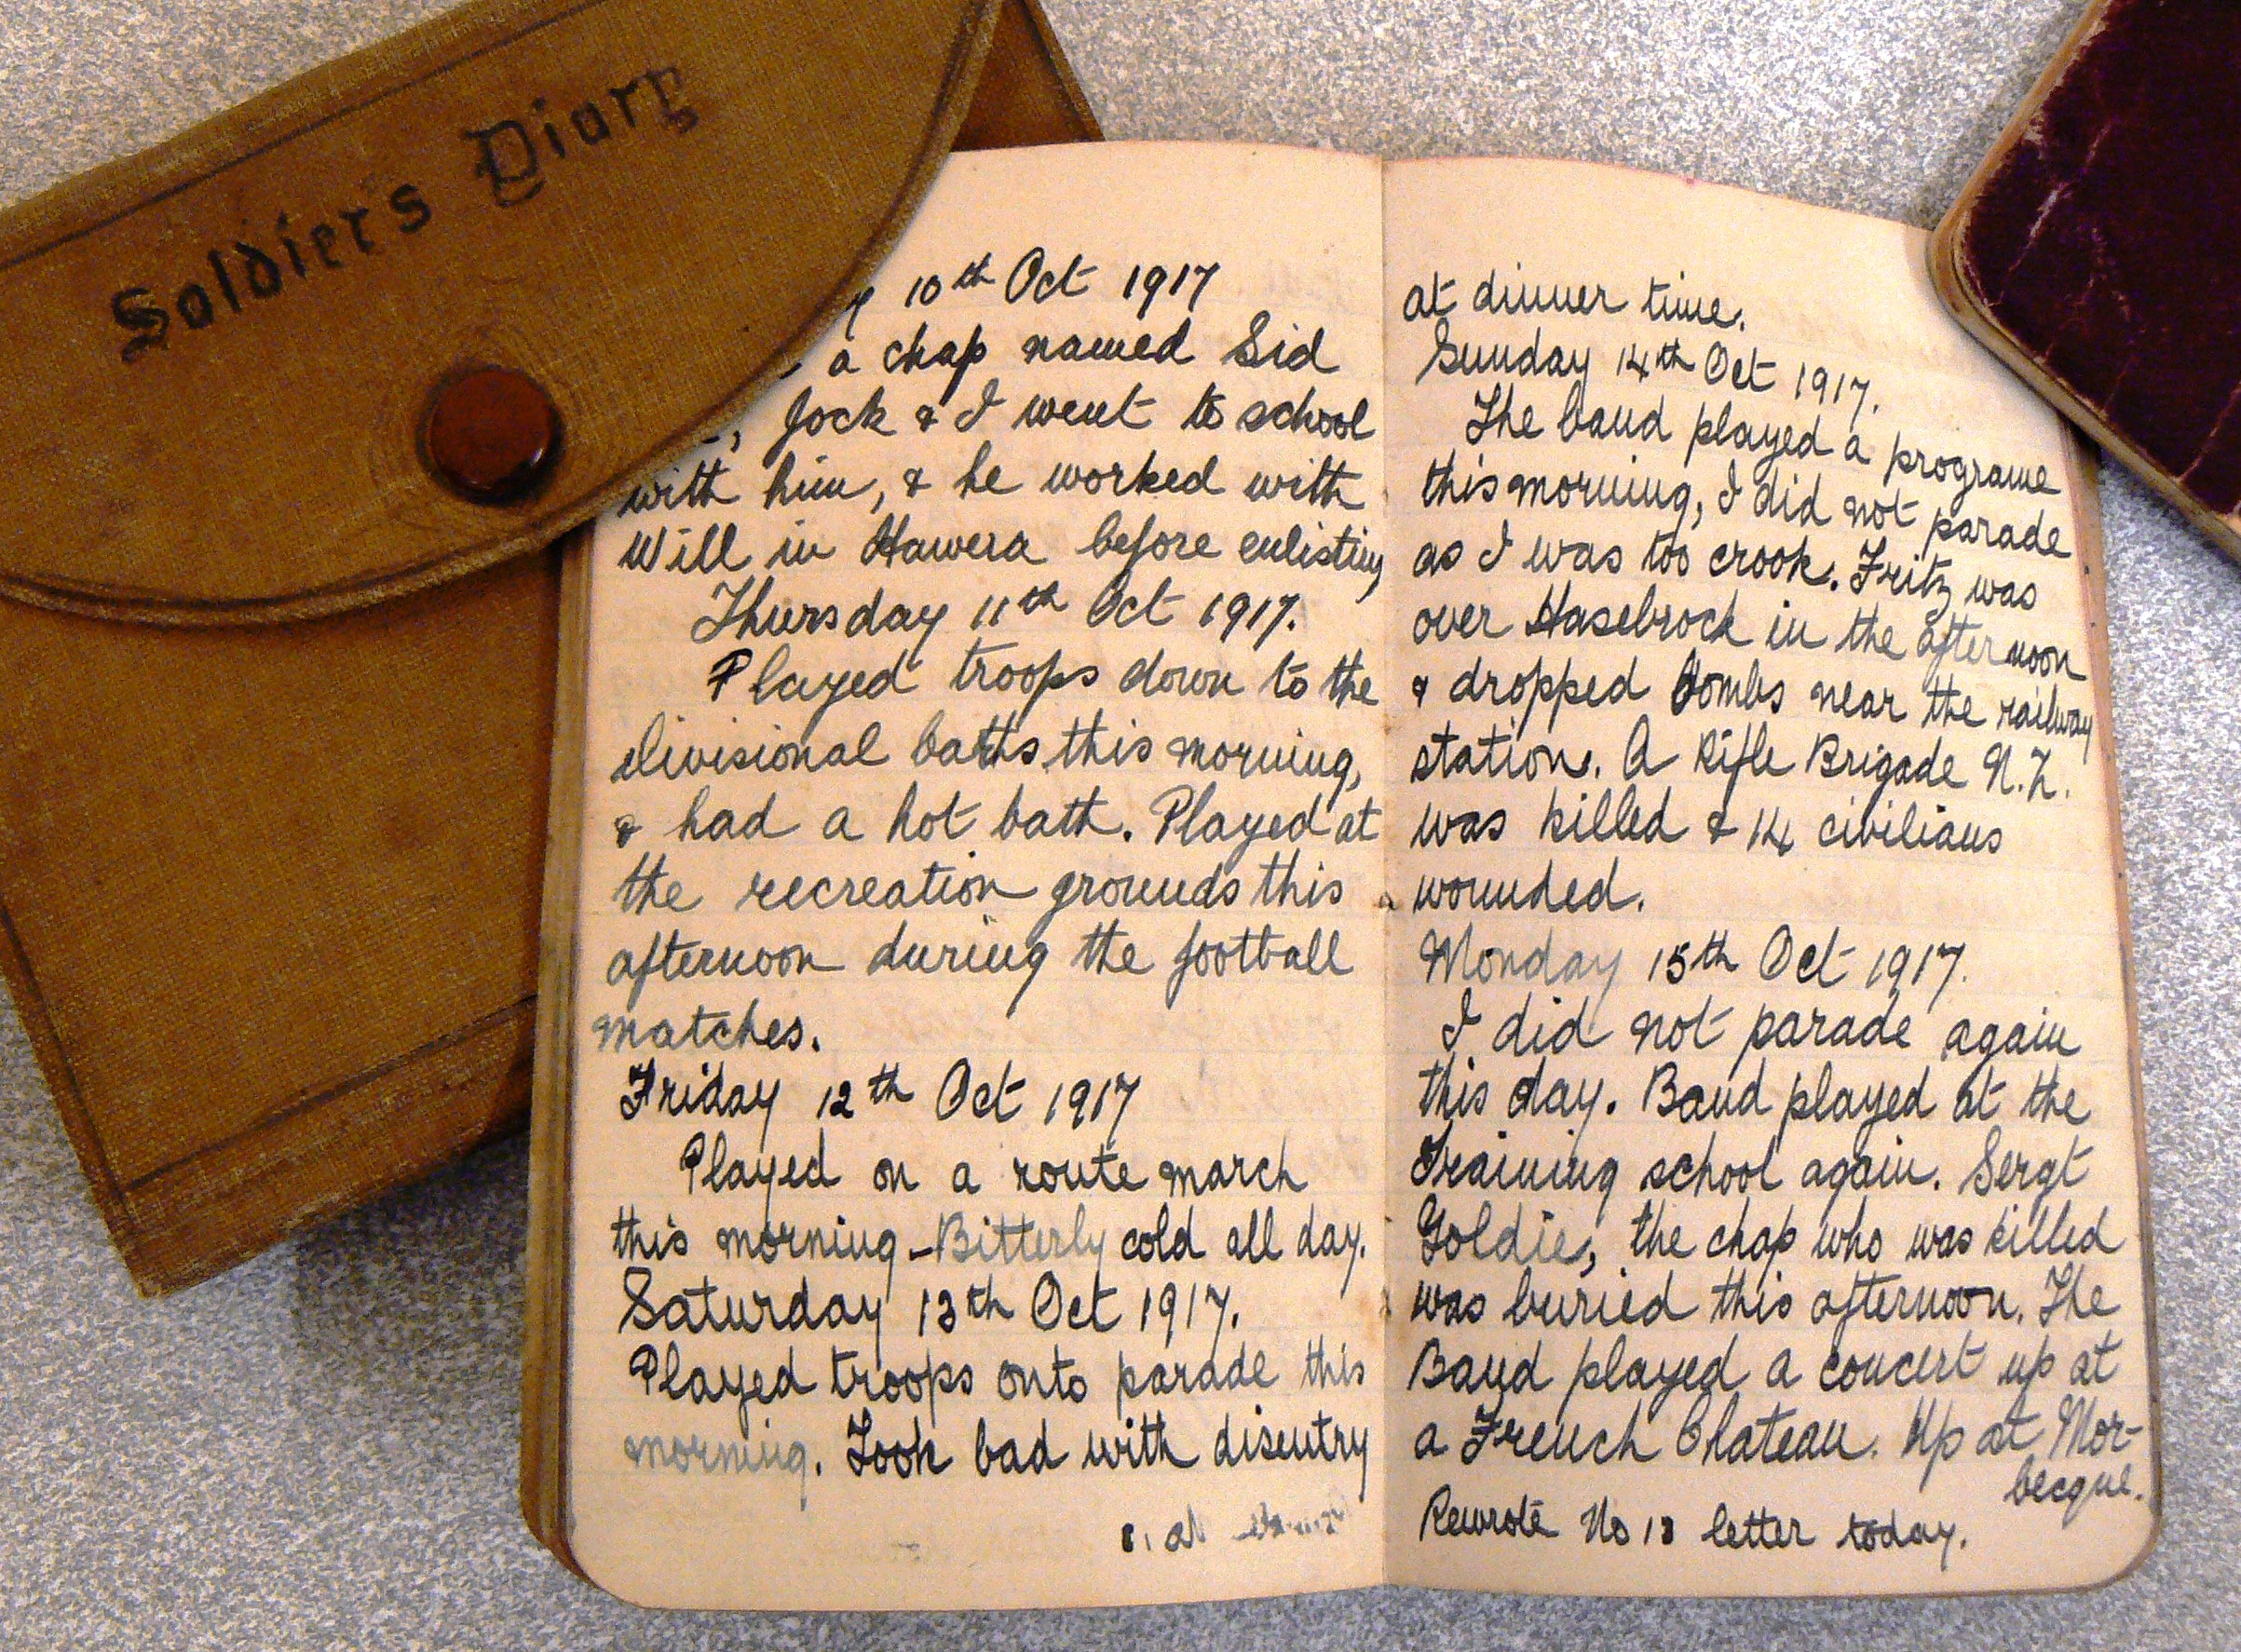 Soldier's Diary
10th Oct 1917
a chap named Sid
Jock & I went to school
with him, & he worked with
Will in Hawera before enlisting
Thursday 11th Oct 1917.
Played troops down to the
divisional baths this morning,
& had a hot bath. Played at
the recreation grounds this
afternoon during the football
matches.
Friday 12th Oct 1917
Played on a route march
this morning - Bitterly cold all day.
Saturday 13th Oct 1917.
Played troops onto parade this
morning. Took bad with disentry
at dinner time.
Sunday 14th Oct 1917.
The band played a programe
this morning, I did not parade
as I was too crook. Fritz was
over Hasebrock in the afternoon
& dropped bombs near the railway
station. A Rifle Brigade N.Z.
was killed & 14 civilians
wounded.
Monday 15th Oct 1917.
I did not parade again
this day. Band played at the
Training school again. Sergt
Goldie, the chap who was killed
was buried this afternoon. The
Band played a concert up at
a French Chateau. Up at Mor-
becque.
Rewrote No 18 letter today.